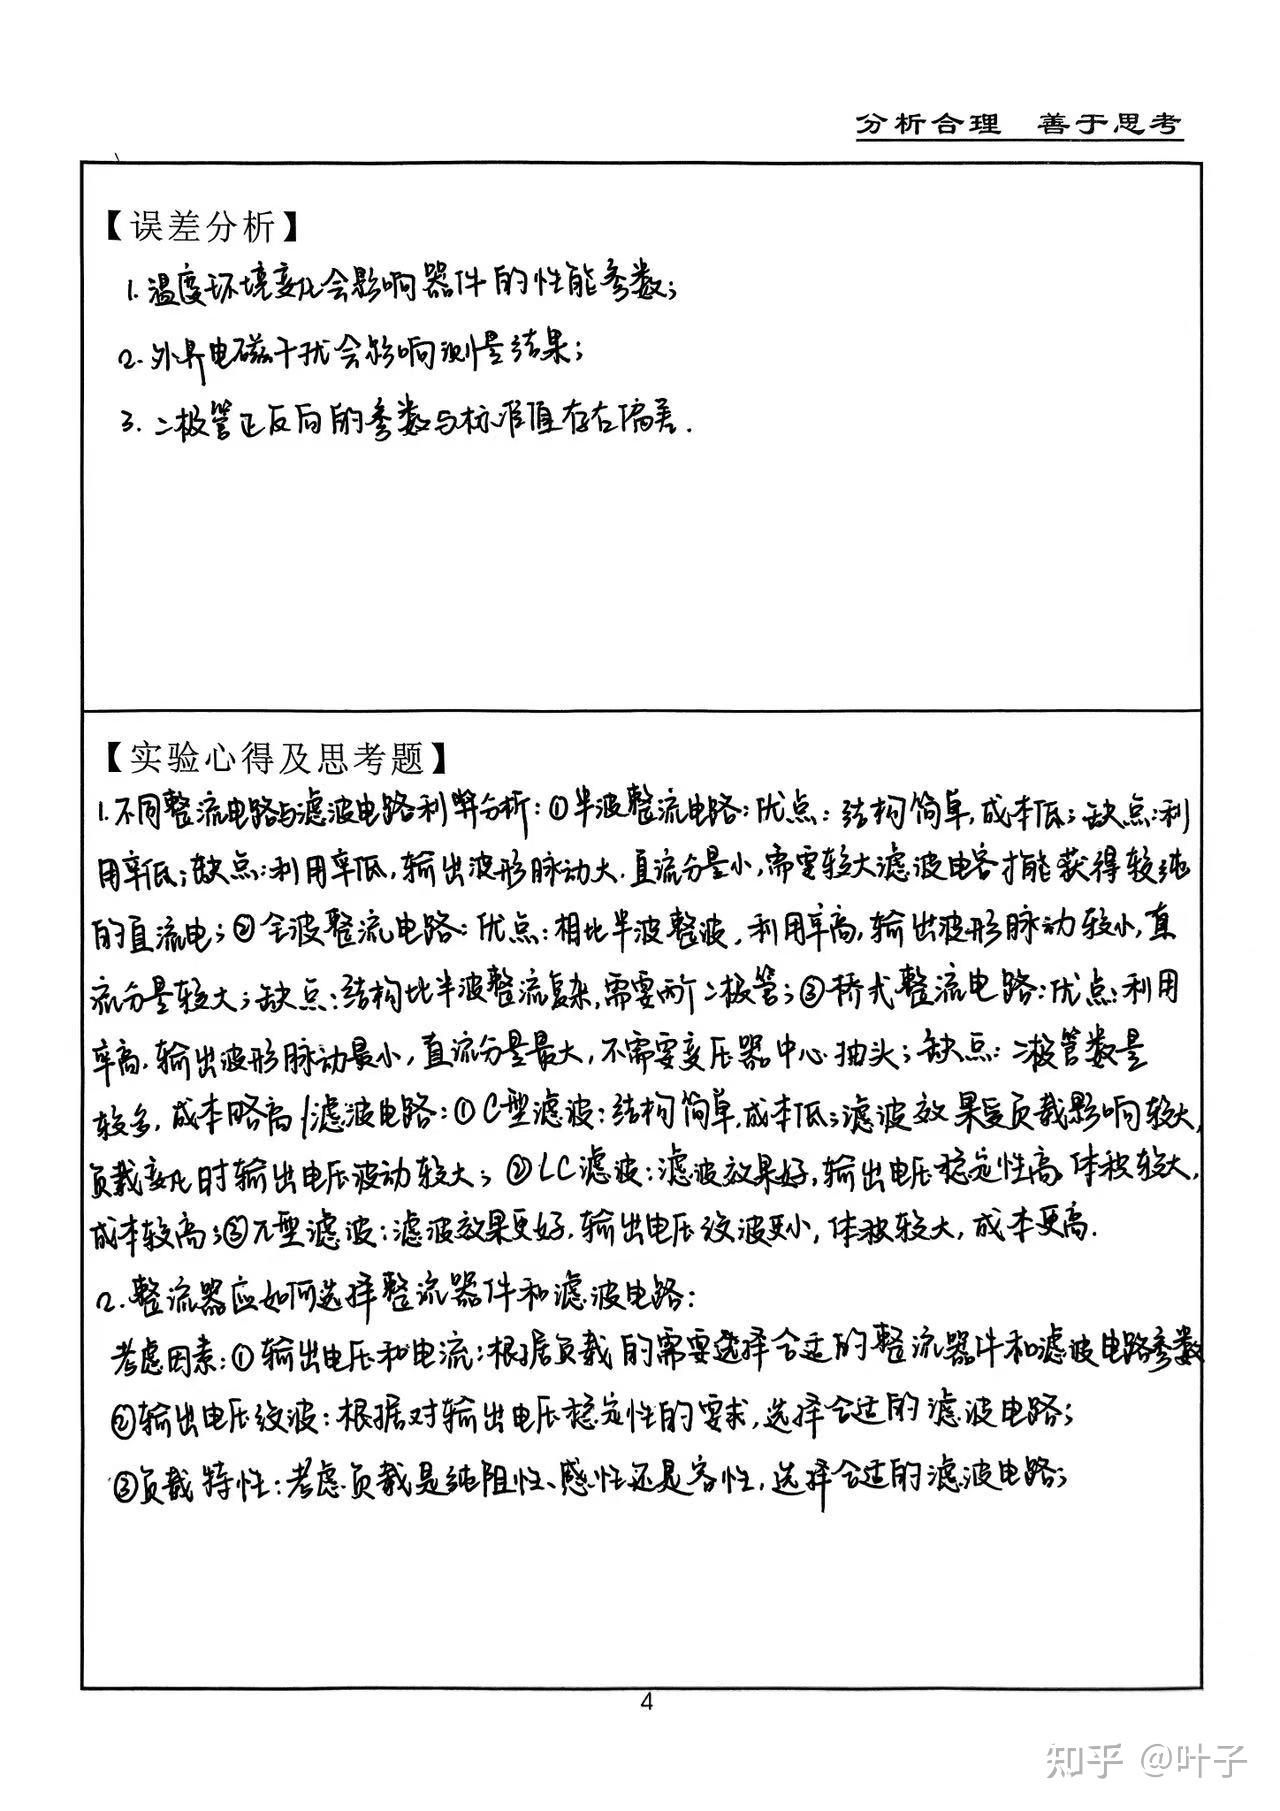 分析合理　善于思考
【误差分析】
1.温度环境变化会影响器件的性能参数;
2.外界电磁干扰会影响测量结果;
3.二极管正反向的参数与标准值存在偏差.
【实验心得及思考题】
1.不同整流电路与滤波电路利弊分析:①半波整流电路:优点:结构简单,成本低;缺点:利
用率低;缺点:利用率低,输出波形脉动大.直流分量小,需要较大滤波电容才能获得较纯
的直流电;②全波整流电路:优点:相比半波整波,利用率高,输出波形脉动较小,直
流分量较大;缺点:结构比半波整流复杂,需要两个二极管;③桥式整流电路:优点:利用
率高,输出波形脉动最小,直流分量最大,不需要变压器中心抽头;缺点:二极管数量
较多,成本略高/滤波电路:①C型滤波:结构简单,成本低;滤波效果受负载影响较大,
负载变化时输出电压波动较大;②LC滤波:滤波效果好,输出电压稳定性高,体积较大,
成本较高;③π型滤波:滤波效果更好,输出电压纹波更小,体积较大,成本更高.
2.整流器应如何选择整流器件和滤波电路:
考虑因素:①输出电压和电流:根据负载的需要选择合适的整流器件和滤波电路参数
②输出电压纹波:根据对输出电压稳定性的要求,选择合适的滤波电路;
③负载特性:考虑负载是纯阻性、感性还是容性,选择合适的滤波电路;
4
知乎 @叶子